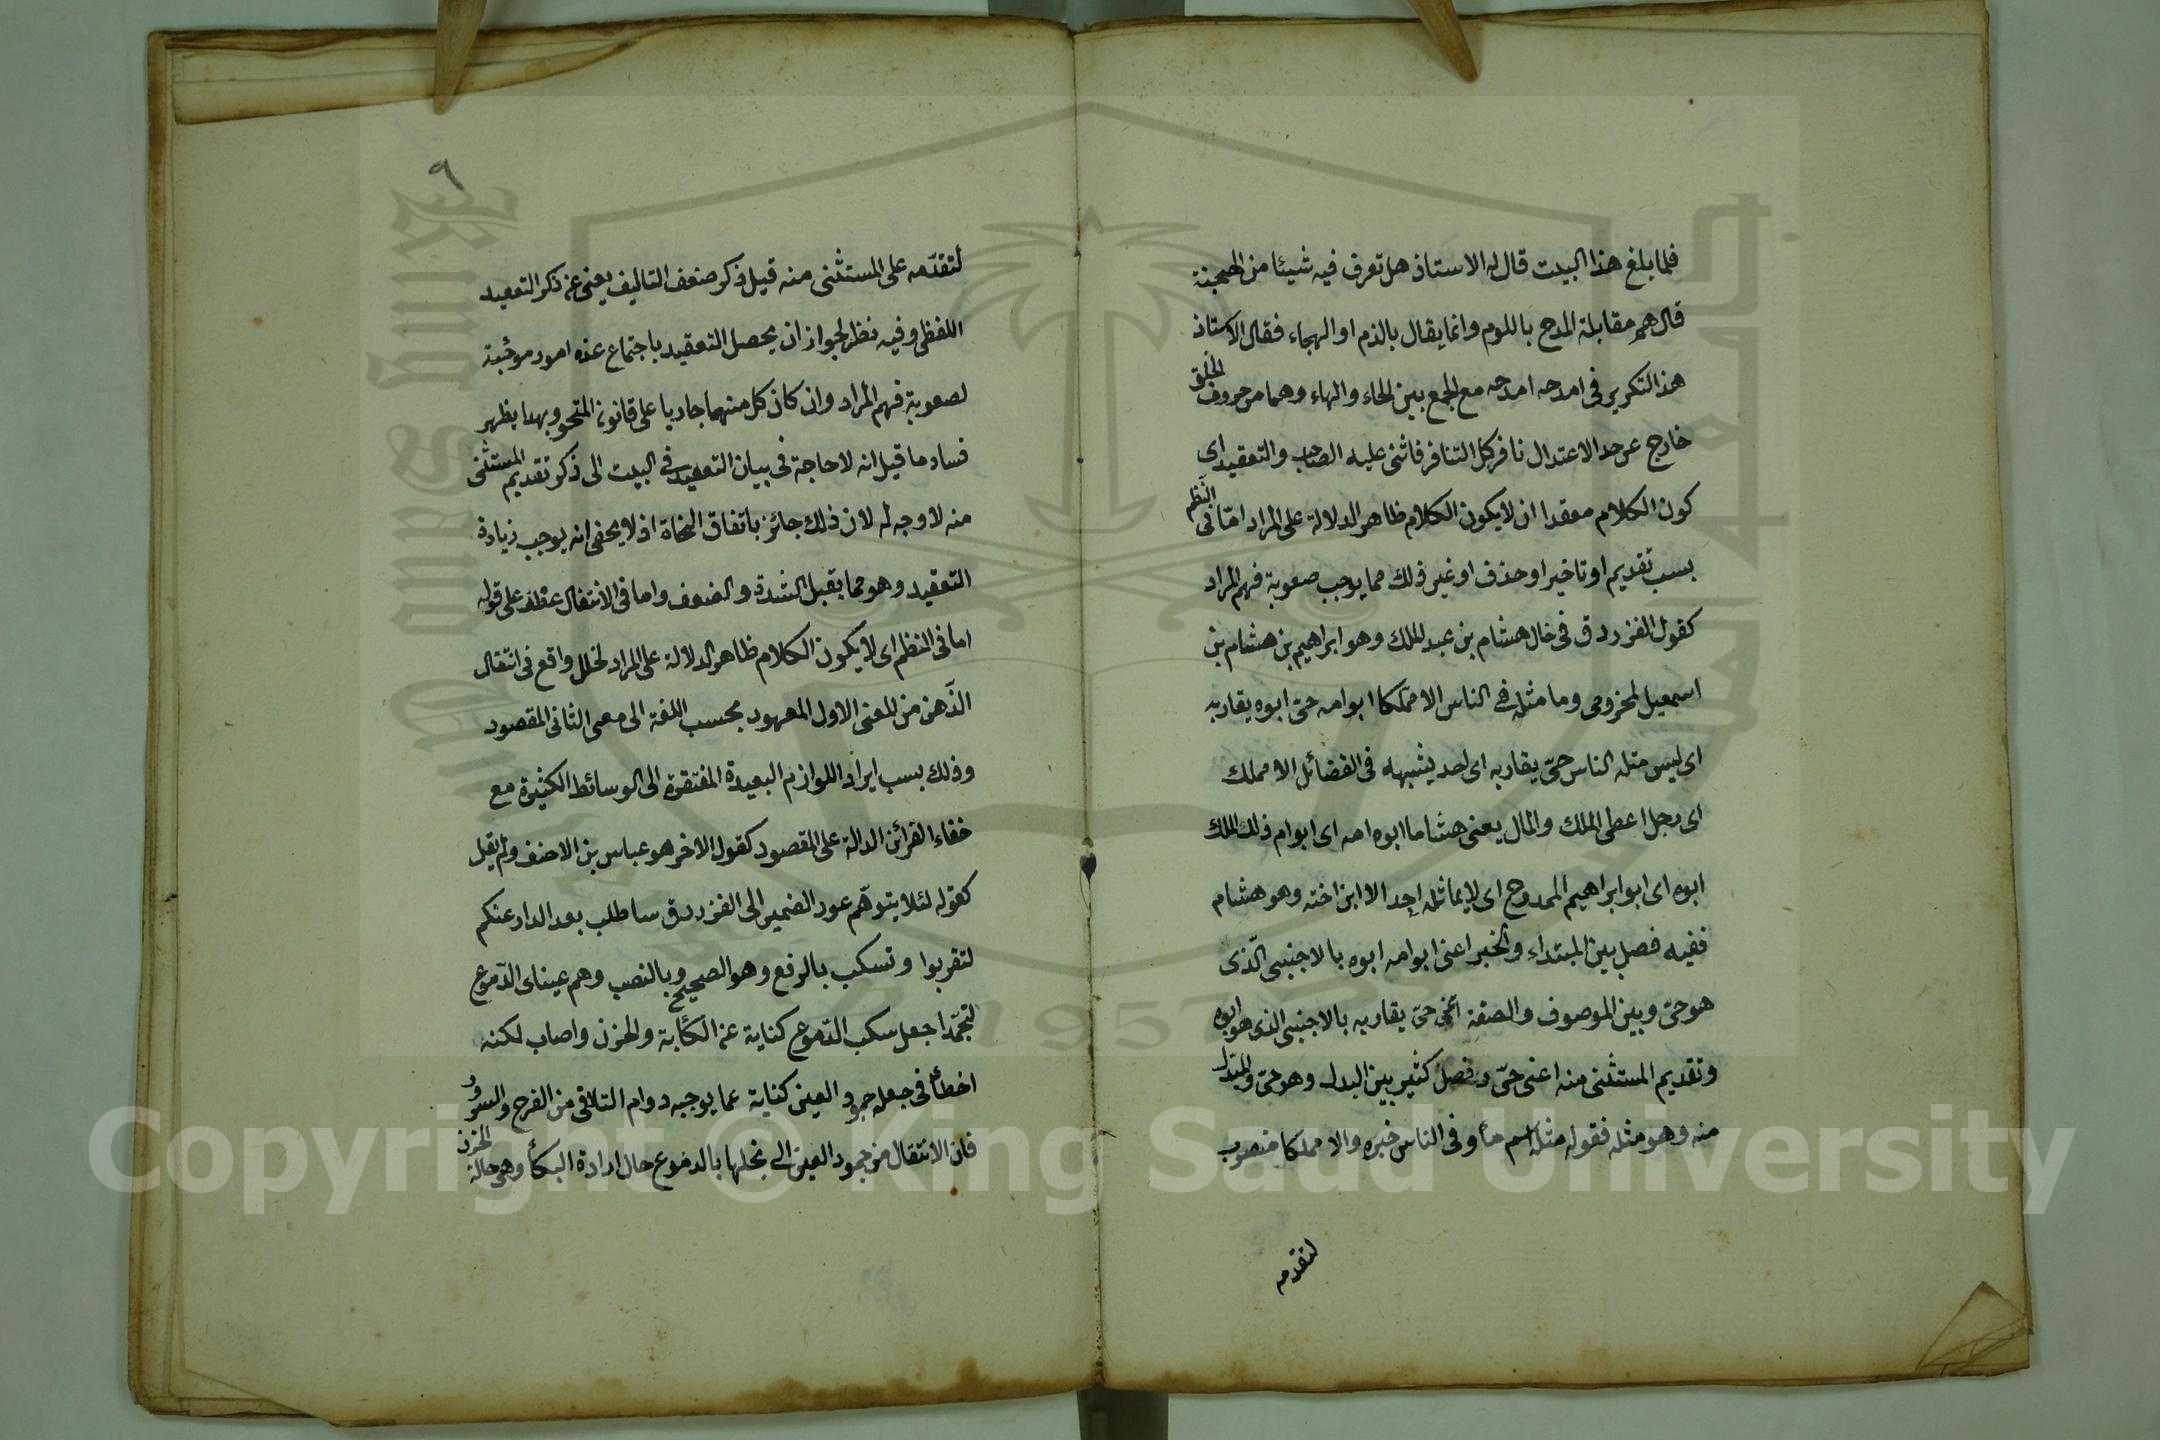 فلما بلغ هذا البيت قال له الاستاذ هل تعرف فيه شيئا من الهجنة
قال هم مقابلة المدح باللوم وانما يقال بالذم او الهجاء فقال الاستاذ
هذا التكرير فى امدحه امدحه مع الجمع بين الحاء والهاء وهما من حروف الحلق
خارج عن حد الاعتدال نافر كل التنافر فاثنى عليه الصاحب والتعقيد اى
كون الكلام معقدا ان لا يكون الكلام ظاهر الدلالة على المراد امّا فى النظم
بسبب تقديم او تاخير او حذف او غير ذلك مما يوجب صعوبة فهم المراد
كقول الفرزدق فى خال هشام بن عبد الملك وهو ابراهيم بن هشام بن
اسمعيل المخزومى وما مثله فى الناس الا مملكا ابو امه حىّ ابوه يقاربه
اى ليس مثله الناس حىّ يقاربه اى احد يشبهه فى الفضائل الا مملك
اى رجل اعطى الملك والمال يعنى هشاما ابوه امه اى ابو ام ذلك الملك
ابوه اى ابو ابراهيم الممدوح اى لا يماثله احد الا ابن اخته وهو هشام
ففيه فصل بين المبتداء والخبر اعنى ابو امه ابوه بالاجنبى الّذى
هو حىّ وبين الموصوف والصفة اعنى حىّ يقاربه بالاجنبى الذى هو ابوه
وتقديم المستثنى منه اعنى حىّ وفصل كثير بين البدل وهو حىّ والمبدل
منه وهو مثله فقوله مثله اسم ما وفى الناس خبره والا مملكا منصوب
لتقدمه
٩
لتقدّمه على المستثنى منه قيل ذكر ضعف التاليف يغنى عن ذكر التعقيد
اللفظى وفيه نظر لجواز ان يحصل التعقيد باجتماع عدة امور موجبة
لصعوبة فهم المراد وان كان كل منهما جاريا على قانون النحو وبهذا يظهر
فساد ما قيل انه لا حاجة فى بيان التعقيد فى البيت الى ذكر تقديم المستثنى
منه لا وجه له لان ذلك جائز باتفاق النحاة اذ لا يخفى انه يوجب زيادة
التعقيد وهو مما يقبل الشدة والضعف واما فى الانتقال عطف على قوله
اما فى النظم اى لا يكون الكلام ظاهر الدلالة على المراد لخلل واقع فى انتقال
الذّهن من المعنى الاول المعهود بحسب اللغة الى معنى الثانى المقصود
وذلك بسبب ايراد اللوازم البعيدة المفتقرة الى الوسائط الكثيرة مع
خفاء القرائن الدالة على المقصود كقول الاخر هو عباس بن الاحنف ولم يقل
كقوله لئلا يتوهّم عود الضمير الى الفرزدق ساطلب بعد الدار عنكم
لتقربوا وتسكب بالرفع وهو الصحيح وبالنصب وهم عيناى الدّموع
لتجمّدا جعل سكب الدّموع كناية عن الكأبة والحزن واصاب لكنه
اخطأ فى جعله جمود العين كناية عما يوجبه دوام التلاقى من الفرح والسرور
فان الانتقال من جمود العين الى بخلها بالدموع حال ارادة البكأ وهى حالة الحزن
Copyright © King Saud University
King Saud University
1957